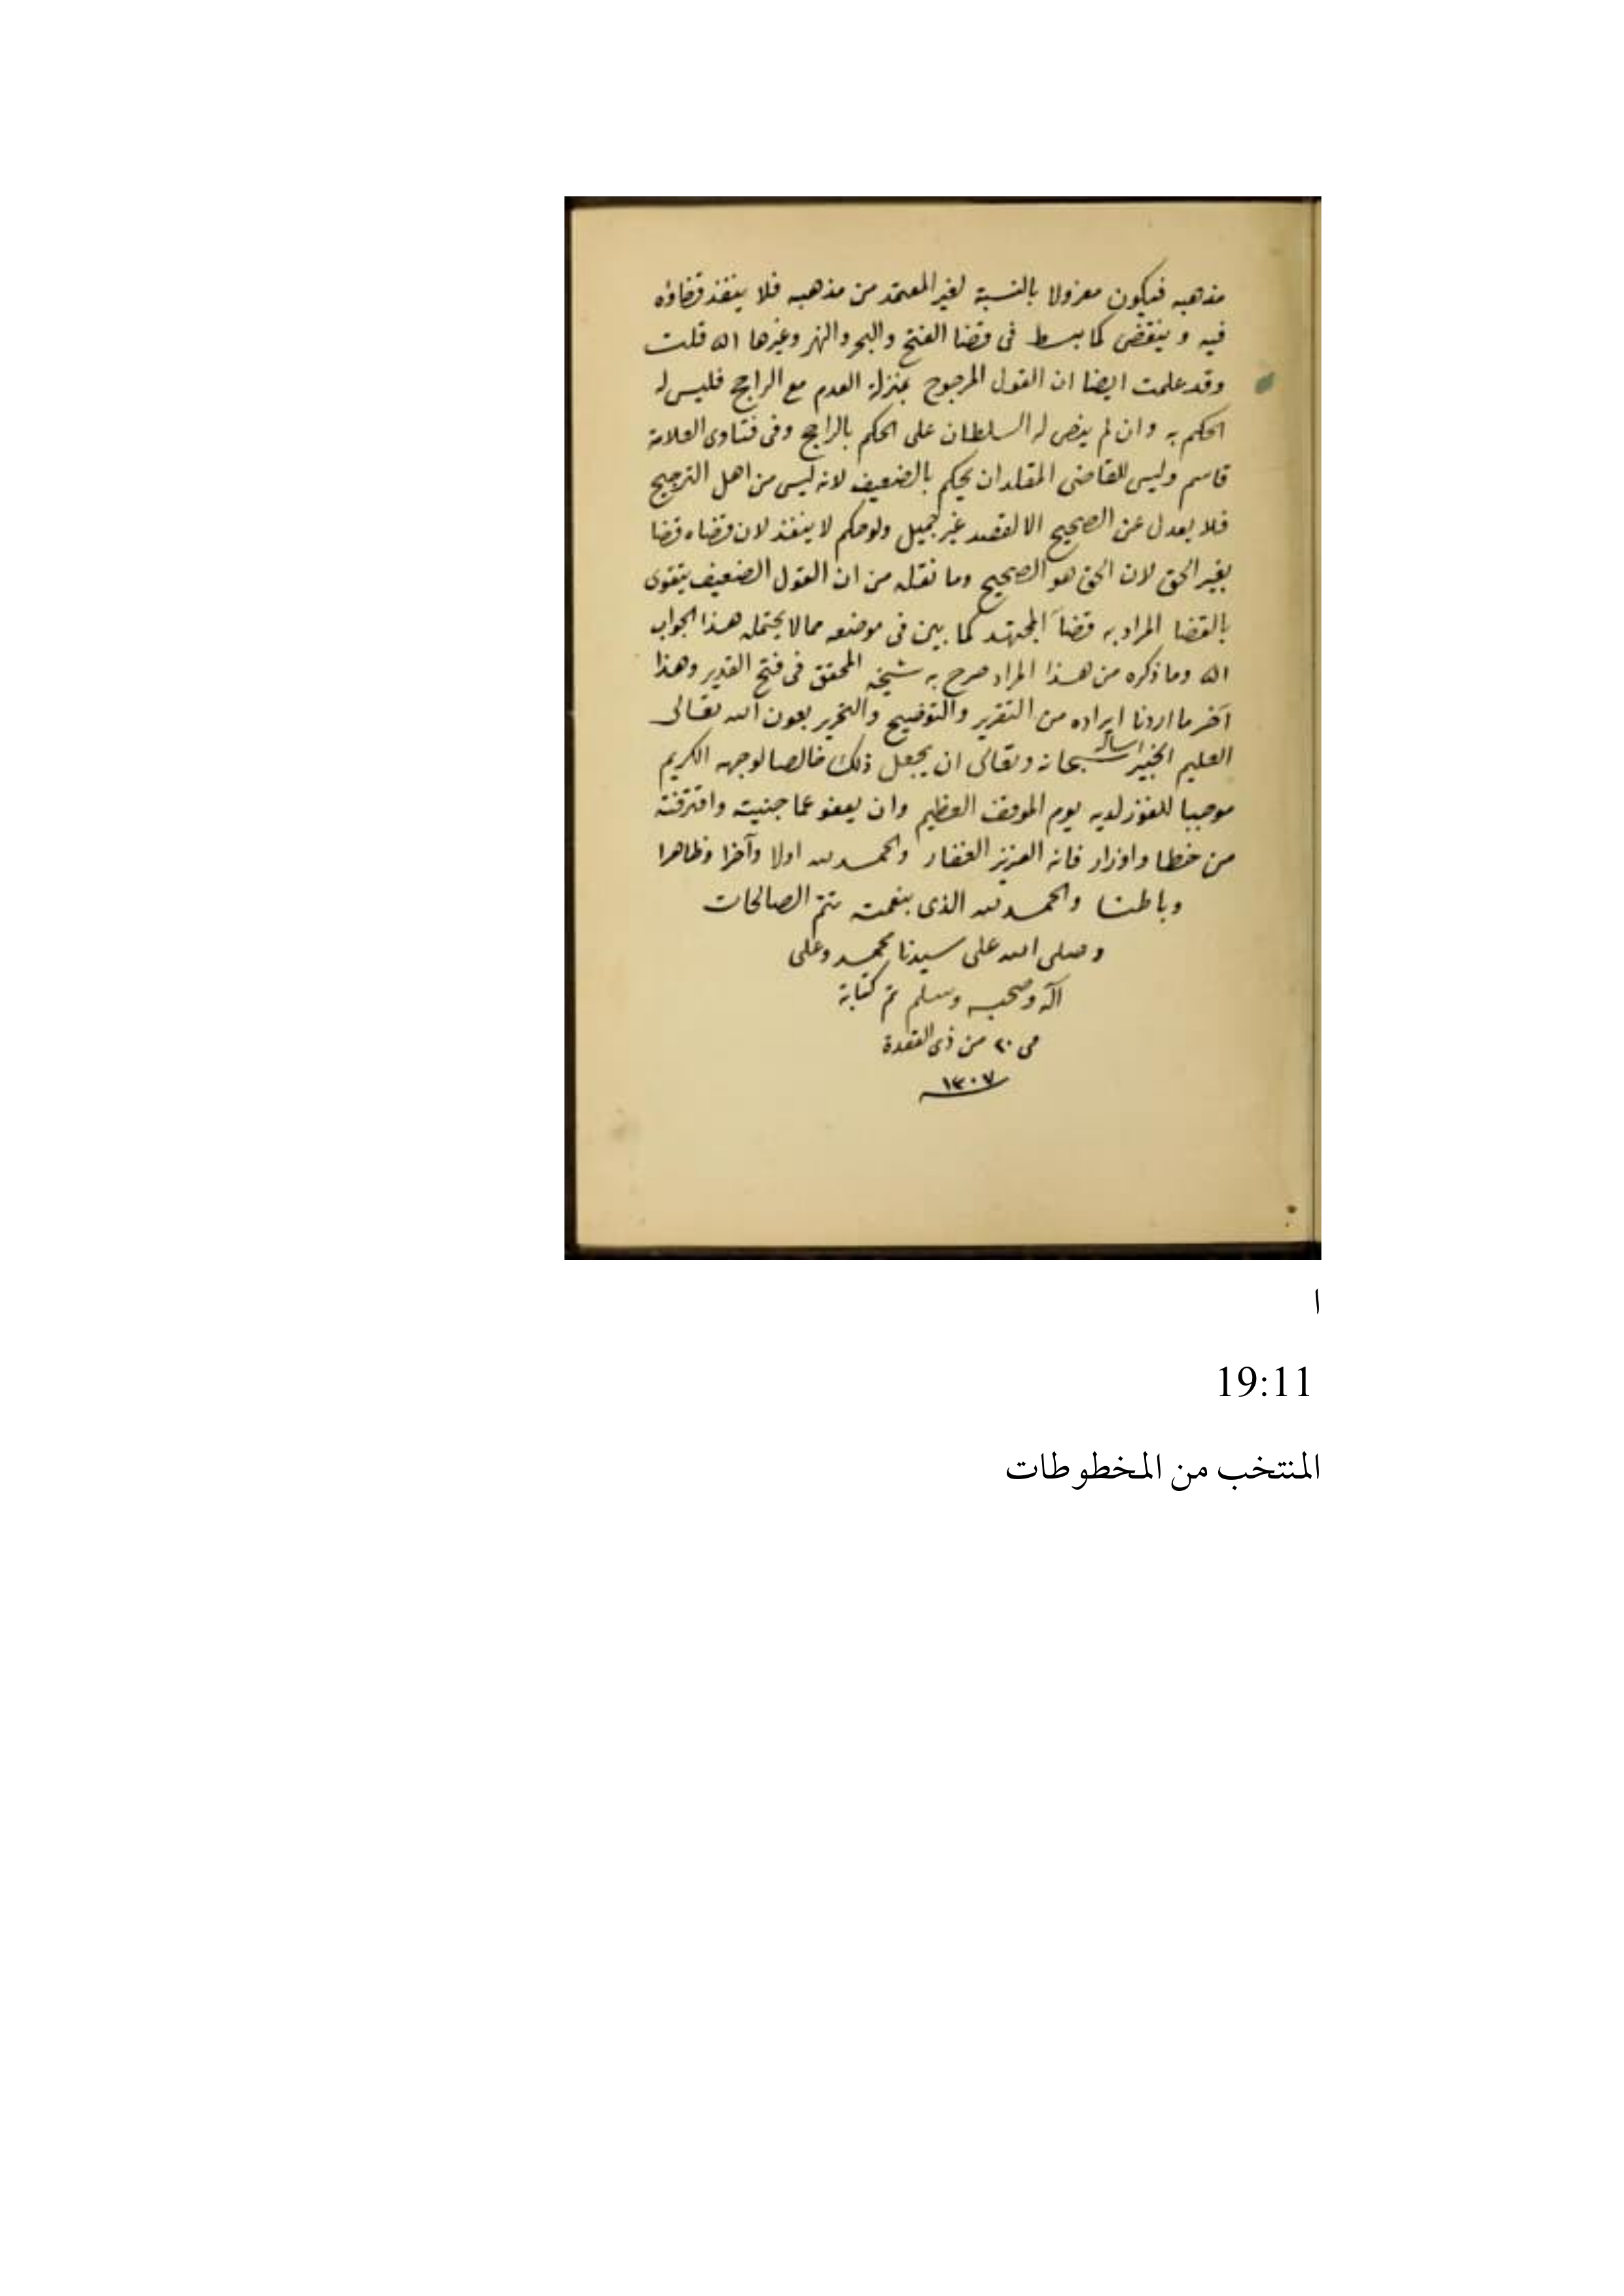 مذهبه فيكون معزولا بالنسبة لغير المعتمد من مذهبه فلا ينفذ قضاؤه
فيه و ينقض كما بسط فى قضا الفتح والبحر والنهر وغيرها اه قلت
وقد علمت ايضا ان القول المرجوح بمنزلة العدم مع الراجح فليس له
الحكم به وان لم ينص له السلطان على الحكم بالراجح وفى فتاوى العلامة
قاسم وليس للقاضى المقلد ان يحكم بالضعيف لانه ليس من اهل الترجيح
فلا يعدل عن الصحيح الا لقصد غير جميل ولو حكم لا ينفذ لان قضاه قضا
بغير الحق لان الحق هو الصحيح وما نقله من ان القول الضعيف يتقوى
بالقضا المراد به قضاء المجتهد كما بين فى موضعه مما لا يحتمله هذا الجواب
اه وما ذكره من هذا المراد صرح به شيخه المحقق فى فتح القدير وهذا
آخر ما اردنا ايراده من التقرير والتوضيح والتحرير بعون الله تعالى
العليم الخبير اساله سبحانه وتعالى ان يجعل ذلك خالصا لوجهه الكريم
موجبا للفوز لديه يوم الموقف العظيم وان يعفو عما جنيته واقترفته
من خطا واوزار فانه العزيز الغفار والحمد لله اولا وآخرا وظاهرا
وباطنا والحمد لله الذى بنعمته تتم الصالحات
وصلى الله على سيدنا محمد وعلى
آله وصحبه وسلم تم كتابة
فى ٢٠ من ذى القعدة
١٣٠٧
ا
19:11
المنتخب من المخطوطات